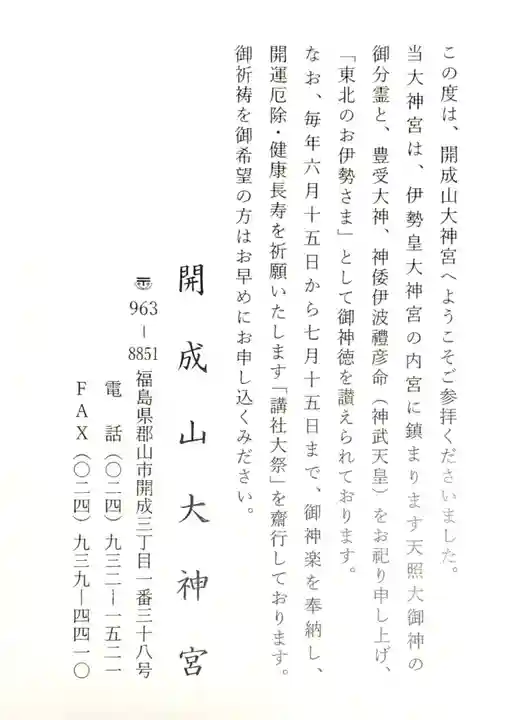 この度は、開成山大神宮へようこそご参拝くださいました。
当大神宮は、伊勢皇大神宮の内宮に鎮まります天照大御神の
御分霊と、豊受大神、神倭伊波禮彦命（神武天皇）をお祀り申し上げ、
「東北のお伊勢さま」として御神徳を讃えられております。
なお、毎年六月十五日から七月十五日まで、御神楽を奉納し、
開運厄除・健康長寿を祈願いたします「講社大祭」を齋行しております。
御祈祷を御希望の方はお早めにお申し込くみださい。
開成山大神宮
〠963－8851福島県郡山市開成三丁目一番三十八号
電　話（〇二四）九三二ー一五二一
ＦＡＸ（〇二四）九三九ー四四一〇